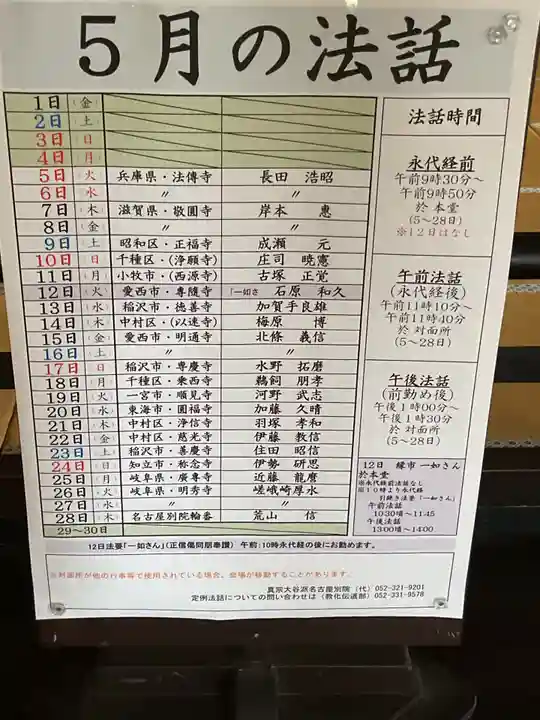 5月の法話
1日（金）
2日（土）
3日（日）
4日（月）
5日（火） 兵庫県・法傳寺 長田 浩昭
6日（水） 〃 〃
7日（木） 滋賀県・敬圓寺 岸本 惠
8日（金） 〃 〃
9日（土） 昭和区・正福寺 成瀬 元
10日（日） 千種区・(浄願寺) 庄司 暁憲
11日（月） 小牧市・(西源寺) 古塚 正覚
12日（火） 愛西市・専隨寺 「一如さ 石原 和久
13日（水） 稲沢市・徳善寺 加賀手良雄
14日（木） 中村区・(以速寺) 梅原 博
15日（金） 愛西市・明通寺 北條 義信
16日（土） 〃 〃
17日（日） 稲沢市・専慶寺 水野 拓磨
18日（月） 千種区・乗西寺 鵜飼 朋孝
19日（火） 一宮市・順見寺 河野 武志
20日（水） 東海市・圓福寺 加藤 久晴
21日（木） 中村区・浄信寺 羽塚 孝和
22日（金） 中村区・慈光寺 伊藤 教信
23日（土） 稲沢市・善慶寺 住田 昭信
24日（日） 知立市・称念寺 伊勢 研思
25日（月） 岐阜県・廣専寺 近藤 龍麿
26日（火） 岐阜県・明秀寺 嵯峨崎厚水
27日（水） 〃 〃
28日（木） 名古屋別院輪番 荒山 信
29～30日
法話時間
永代経前
午前9時30分～
午前9時50分
於 本堂
(5～28日)
※12日はなし
午前法話
(永代経後)
午前11時10分～
午前11時40分
於 対面所
(5～28日)
午後法話
(前勤め後)
午後1時00分～
午後1時30分
於 対面所
(5～28日)
12日 縁市 一如さん
於本堂
※永代経前法話なし
※10時より永代経
引続き法要「一如さん」
午前法話
10:30頃～11:45
午後法話
13:00頃～14:00
12日法要「一如さん」(正信偈同朋奉讃) 午前:10時永代経の後にお勤めます。
※対面所が他の行事等で使用されている場合、会場が移動することがあります。
真宗大谷派名古屋別院 (代) 052-321-9201
定例法話についての問い合わせは (教化伝道部) 052-331-9578